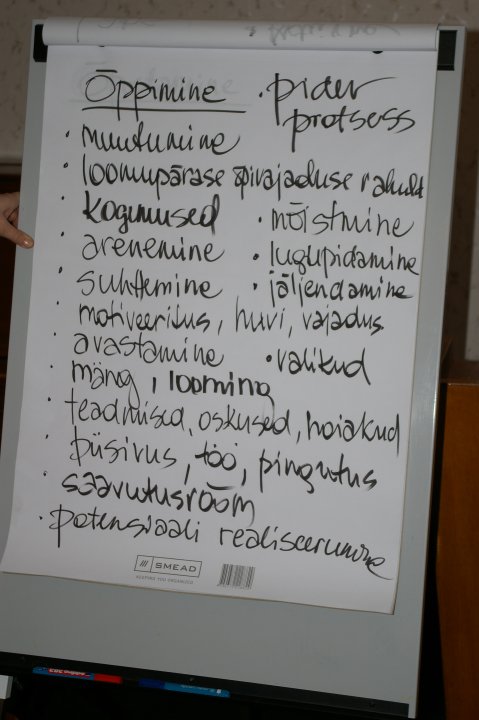 Õppimine
• pidev
protsess
• muutumine
• loomupärase õpivajaduse rahuld
• kogemused
• mõistmine
• arenemine
• lugupidamine
• suhtlemine
• jäljendamine
• motiveeritus, huvi, vajadus
• avastamine
• valikud
• mäng, looming
• teadmised, oskused, hoiakud
• püsivus, töö, pingutus
• saavutusrõõm
• potensiaali realiseerumine
SMEAD
KEEPING YOU ORGANIZED